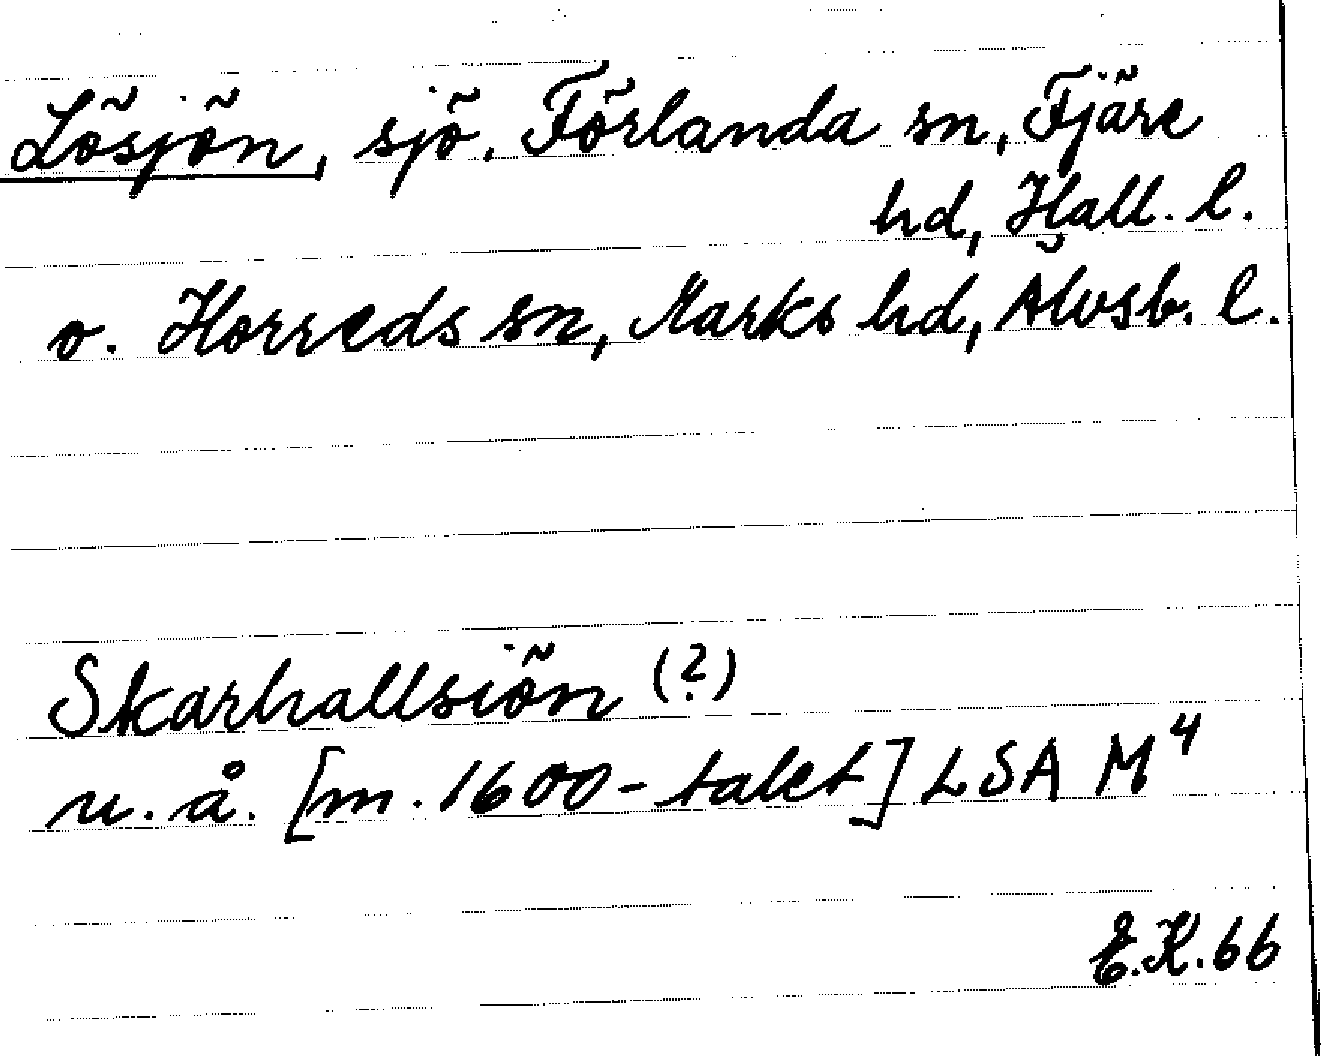 Lösjön, sjö, Förlanda sn, Fjäre
hd, Hall. l.
o. Horreds sn, Marks hd, Älvsb. l.
Skarhallsiön (?)
u. å. [m. 1600-talet] LSA M⁴
E.K. 66